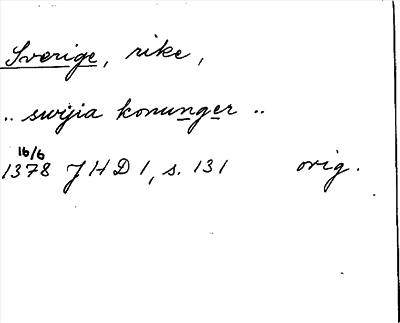 Sverige, rike,
.. swijia konunger ..
16/6
1378 JHD 1, s. 131 orig.